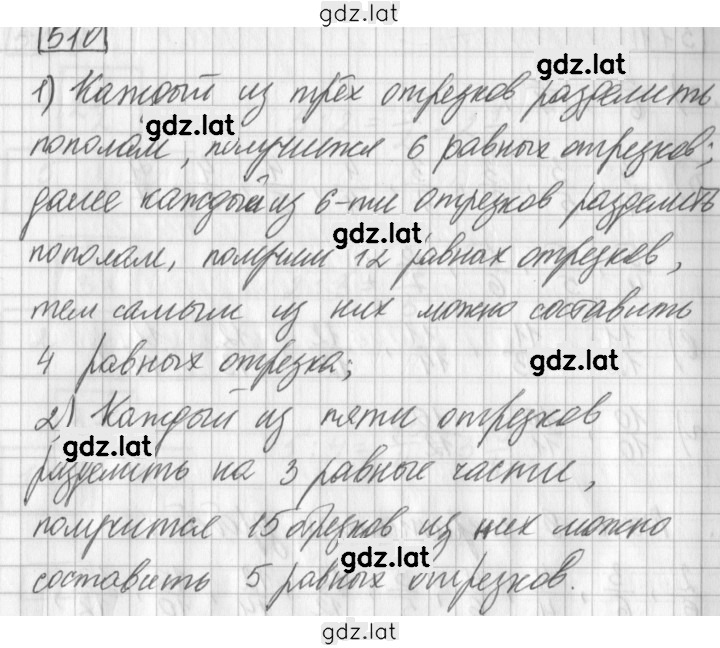 gdz.lat
510
gdz.lat
1) Каждый из трёх отрезков разделить
gdz.lat
пополам, получится 6 равных отрезков;
далее каждый из 6-ти отрезков разделить
gdz.lat
пополам, получим 12 равных отрезков,
тем самым из них можно составить
4 равных отрезка;
gdz.lat
2) Каждый из пяти отрезков
gdz.lat
разделить на 3 равные части,
получится 15 отрезков из них можно
gdz.lat
составить 5 равных отрезков.
gdz.lat